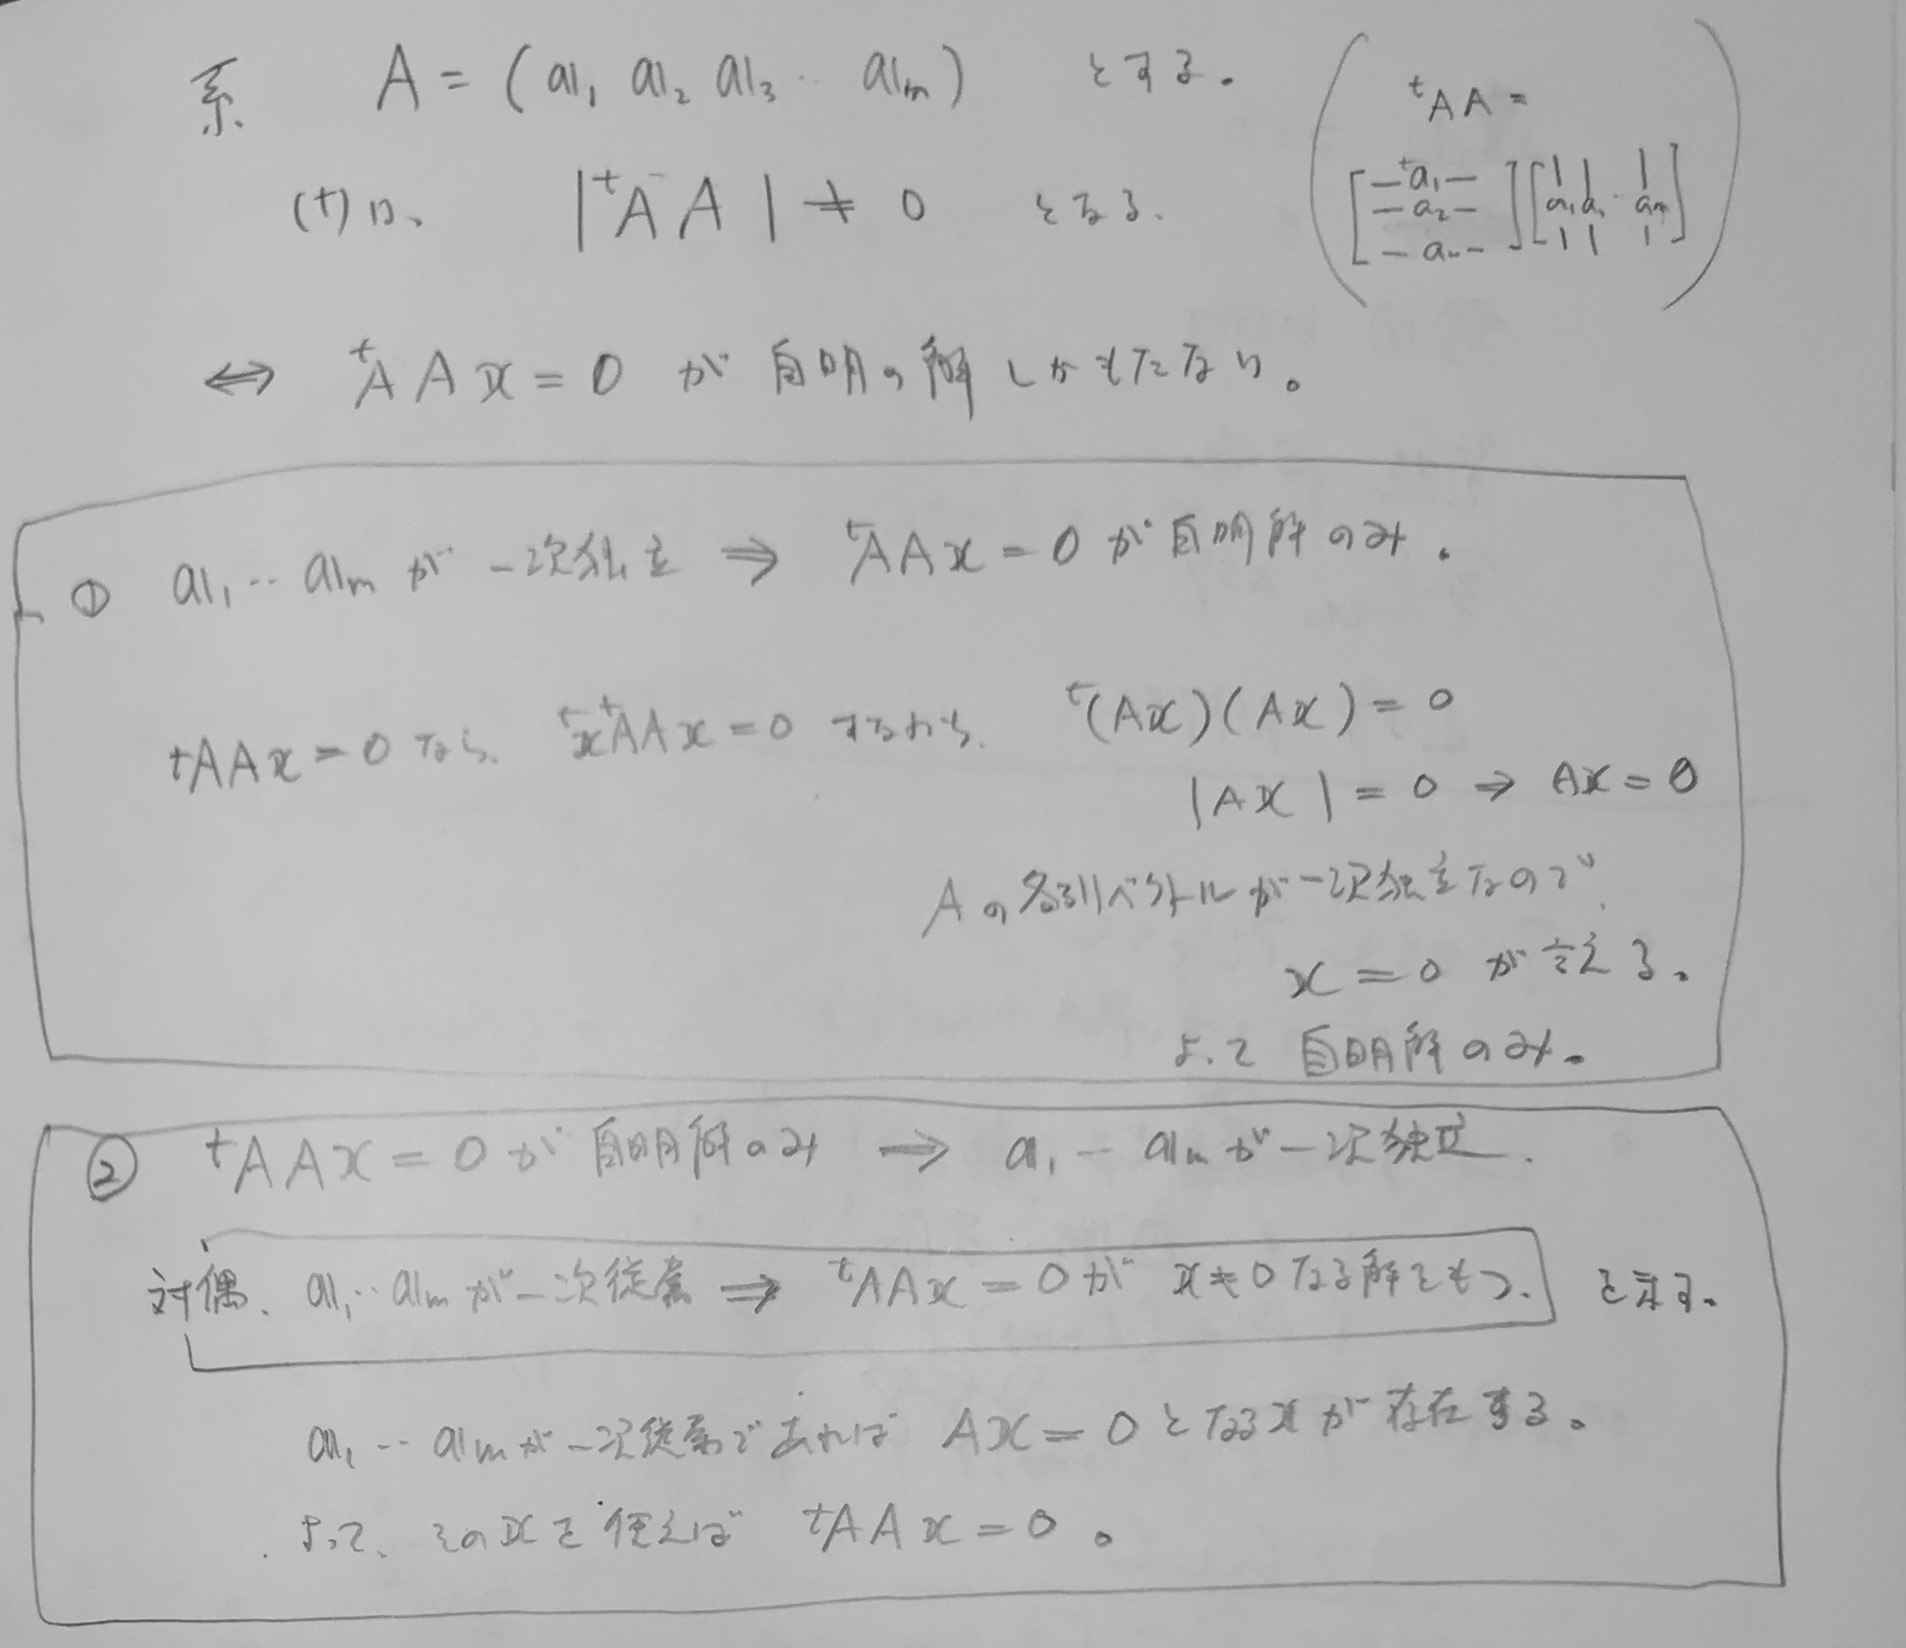 系 A = (a₁ a₂ a₃ ‥ aₘ) とする。
(†)は、 |ᵗAA| ≠ 0 となる.
ᵗAA =
[ —ᵗa₁— —a₂— — a ‥ — ] [ | | | a₁ a₂ ‥ aₘ | | | ]
⇔ ᵗAAx = 0 が自明の解しかもたない。
① a₁ ‥ aₘ が一次独立 ⇒ ᵗAAx = 0 が自明解のみ.
ᵗAAx = 0 なら、 ᵗxᵗAAx = 0 すなわち、 ᵗ(Ax)(Ax) = 0
|Ax| = 0 ⇒ Ax = 0
Aの各列ベクトルが一次独立なので、
x = 0 が言える。
よって自明解のみ。
② ᵗAAx = 0 が自明解のみ → a₁ ‥ aₘ が一次独立.
対偶、 a₁ ‥ aₘ が一次従属 ⇒ ᵗAAx = 0 が x ≠ 0 なる解をもつ. を示す.
a₁ ‥ aₘ が一次従属であれば Ax = 0 となるxが存在する。
よって、そのxを使えば ᵗAAx = 0 。